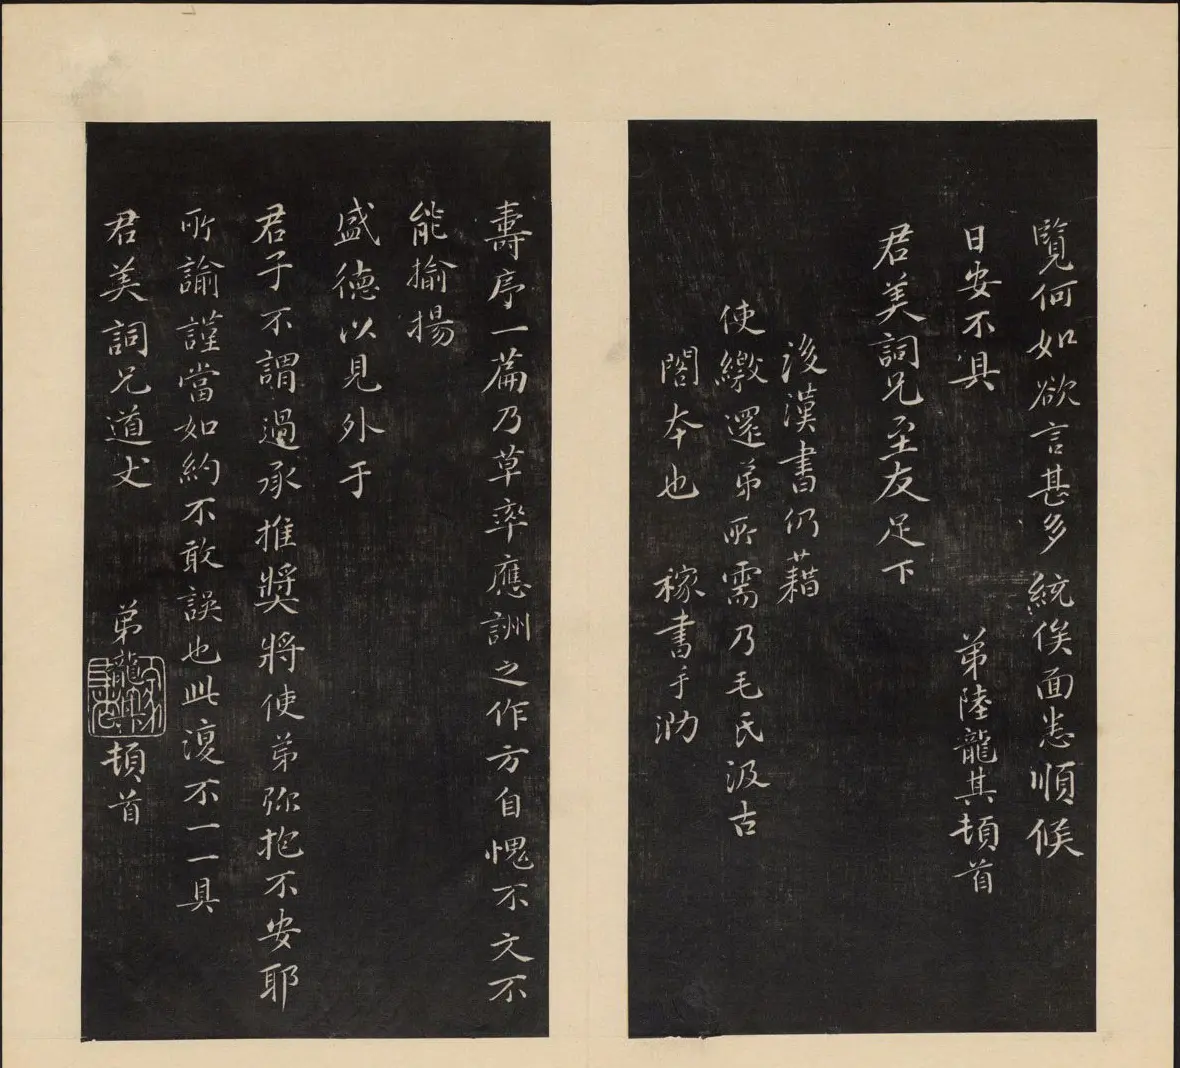 覽何如欲言甚多統俟面悉順候
日安不具
弟陸龍其頓首
君美詞兄至友足下
後漢書仍藉
使繳還弟所需乃毛氏汲古
閣本也
稼書手泐
壽序一篇乃草率應詶之作方自愧不文不
能揄揚
盛德以見外于
君子不謂過承推奬將使弟弥抱不安耶
所諭謹當如約不敢誤也此復不一一具
君美詞兄道丈
弟龍其頓首